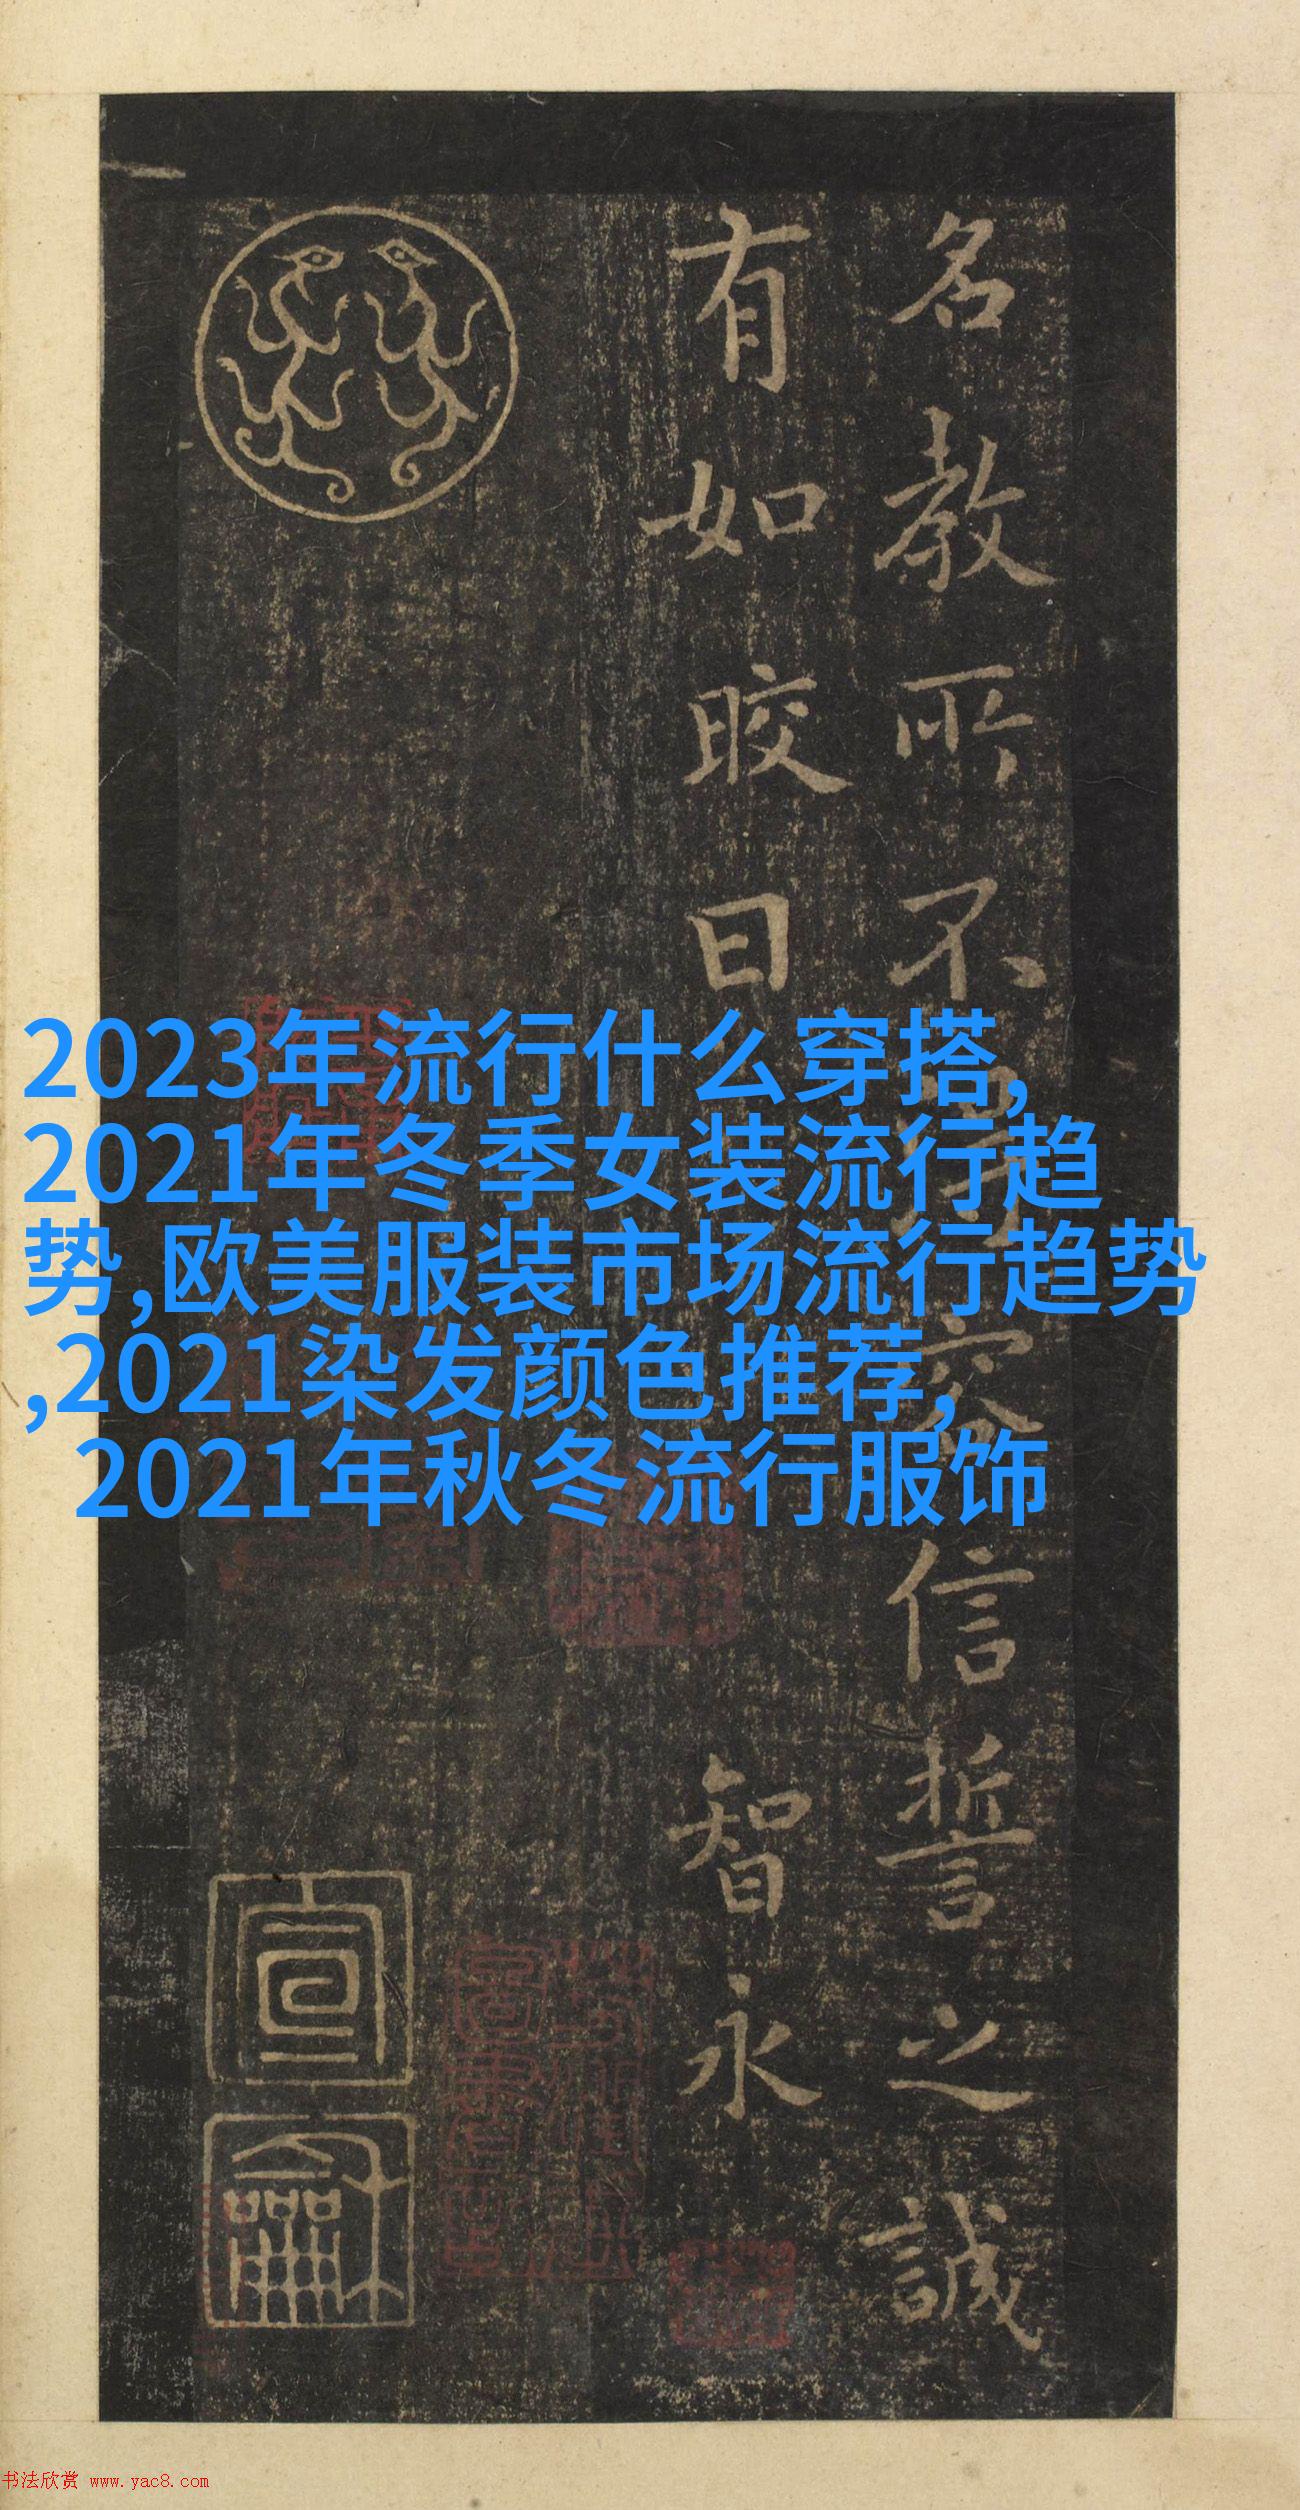 名教所不得容信誓之誠
有如晈日 智永
2023年流行什么穿搭,
2021年冬季女装流行趋
势,欧美服装市场流行趋势
,2021染发颜色推荐,
2021年秋冬流行服饰
书法欣赏 www.yac8.com